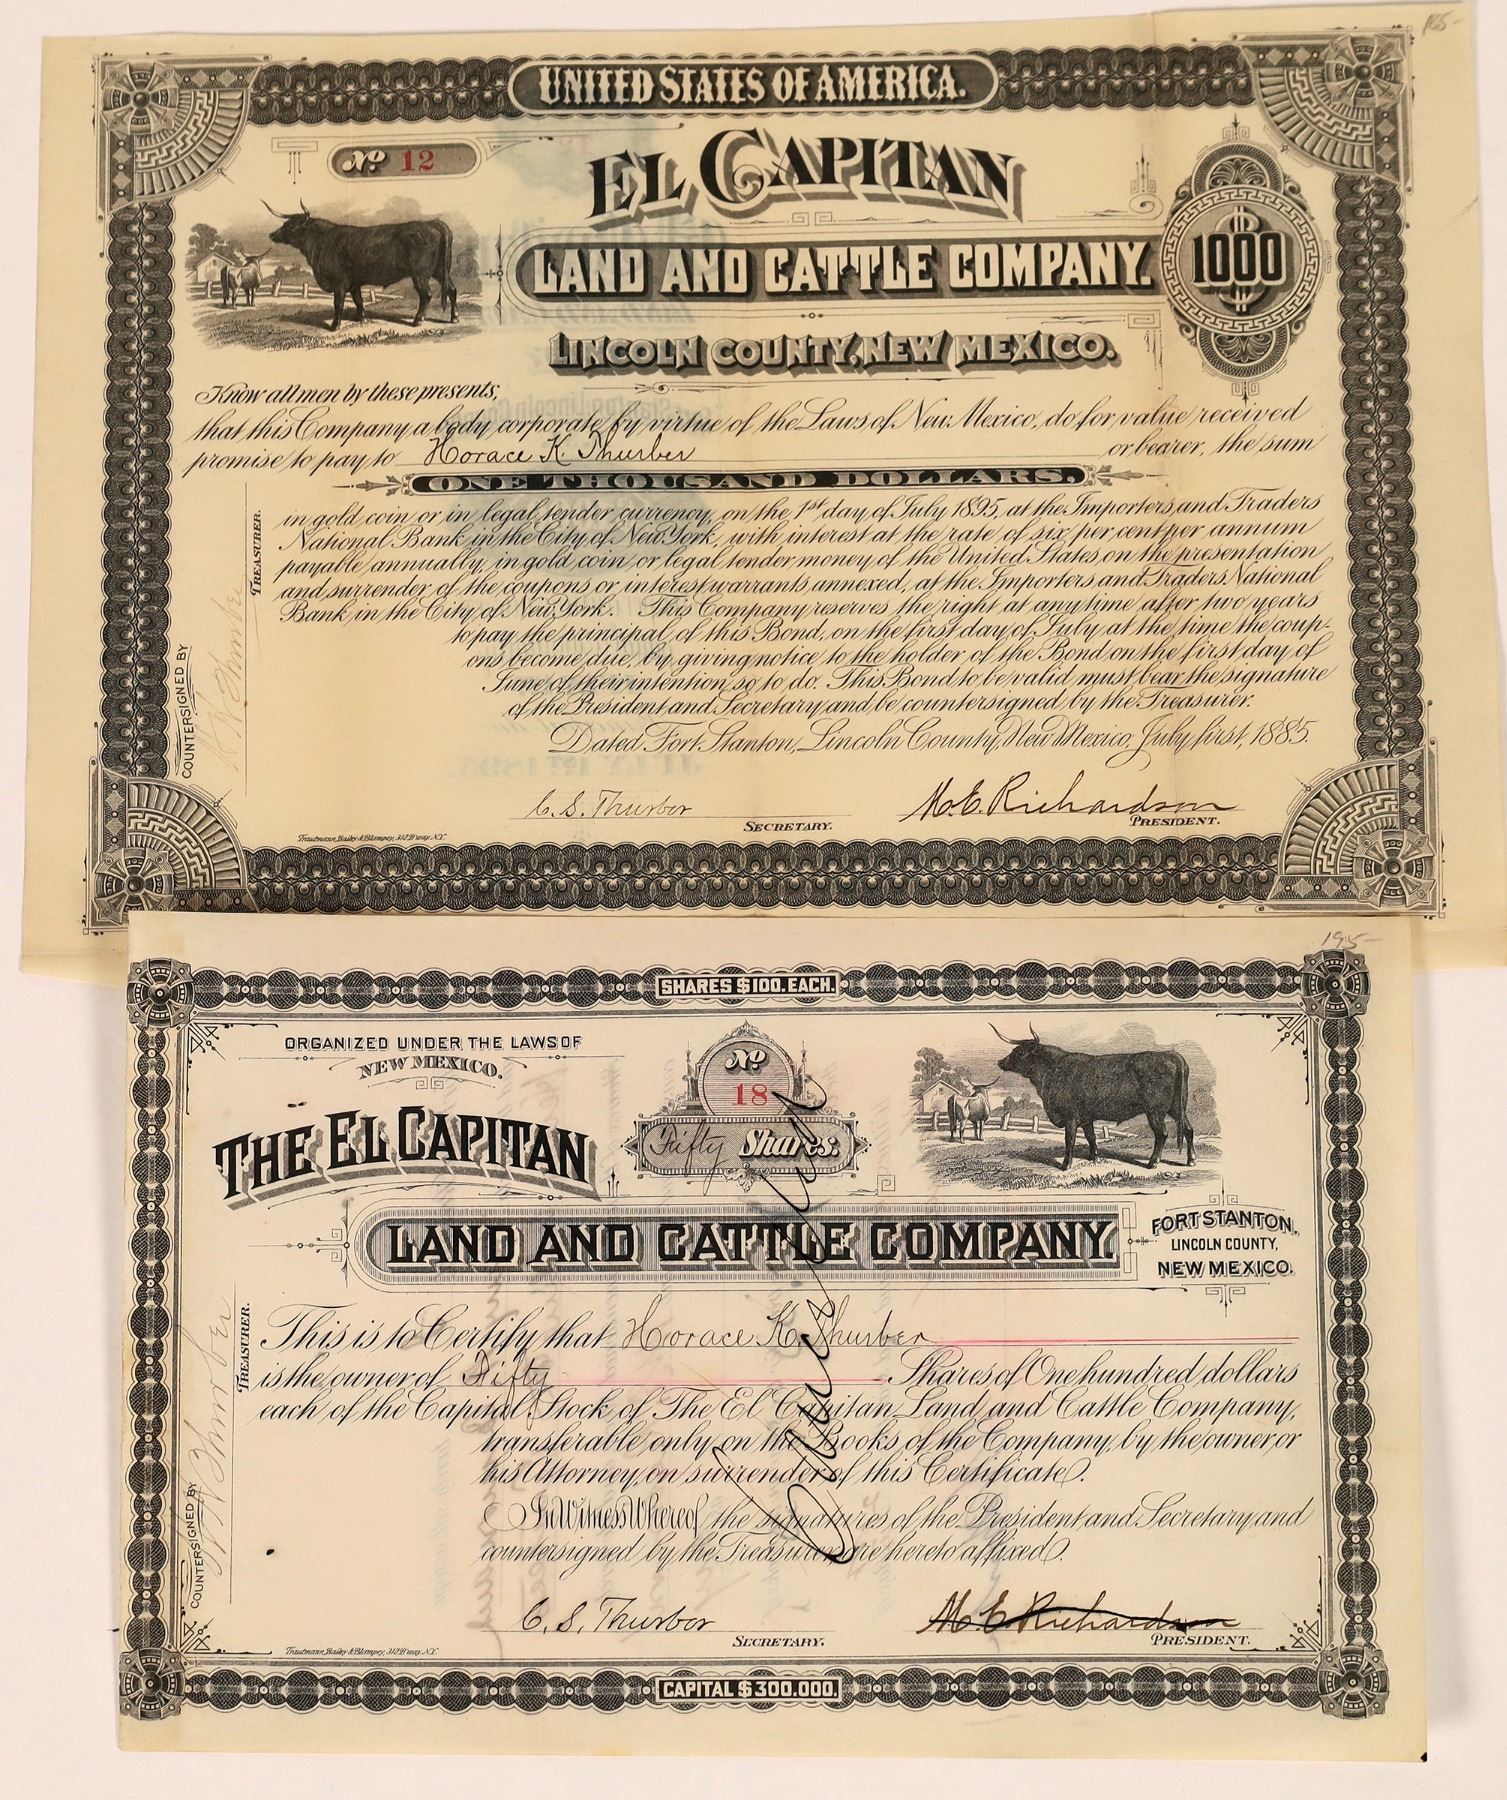 165-
UNITED STATES OF AMERICA.
No 12
EL CAPITAN
LAND AND CATTLE COMPANY.
1000
LINCOLN COUNTY, NEW MEXICO.
Know all men by these presents,
that this Company a body corporate by virtue of the Laws of New Mexico, do for value received
promise to pay to Horace K. Thurber or bearer, the sum
ONE THOUSAND DOLLARS.
in gold coin or in legal tender currency, on the 1st day of July 1895, at the Importers and Traders
National Bank in the City of New York, with interest at the rate of six per cent per annum
payable annually, in gold coin or legal tender money of the United States on the presentation
and surrender of the coupons or interest warrants annexed, at the Importers and Traders National
Bank in the City of New York. This Company reserves the right at any time after two years
to pay the principal of this Bond, on the first day of July at the time the coup-
ons become due, by giving notice to the holder of the Bond on the first day of
June of their intention so to do. This Bond to be valid must bear the signature
of the President and Secretary and be countersigned by the Treasurer.
Dated Fort Stanton, Lincoln County, New Mexico, July first, 1885.
COUNTERSIGNED BY
TREASURER.
C. S. Thurber
SECRETARY.
M. E. Richardson
PRESIDENT.
Trautmann, Bailey & Blampey, 312 B'way. N.Y.
195-
SHARES $100. EACH.
ORGANIZED UNDER THE LAWS OF
NEW MEXICO.
No
18
Fifty Shares.
THE EL CAPITAN
LAND AND CATTLE COMPANY.
FORT STANTON,
LINCOLN COUNTY,
NEW MEXICO.
This is to Certify that Horace K. Thurber
is the owner of Fifty Shares of One hundred dollars
each of the Capital Stock of The El Capitan Land and Cattle Company,
transferable only on the Books of the Company, by the owner, or
his Attorney, on surrender of this Certificate.
In Witness Whereof the signatures of the President and Secretary and
countersigned by the Treasurer are hereto affixed.
Cancelled
COUNTERSIGNED BY
Thurber
TREASURER.
C. S. Thurber
SECRETARY.
M. E. Richardson
PRESIDENT.
Trautmann, Bailey & Blampey, 312 B'way. N.Y.
CAPITAL $300,000.